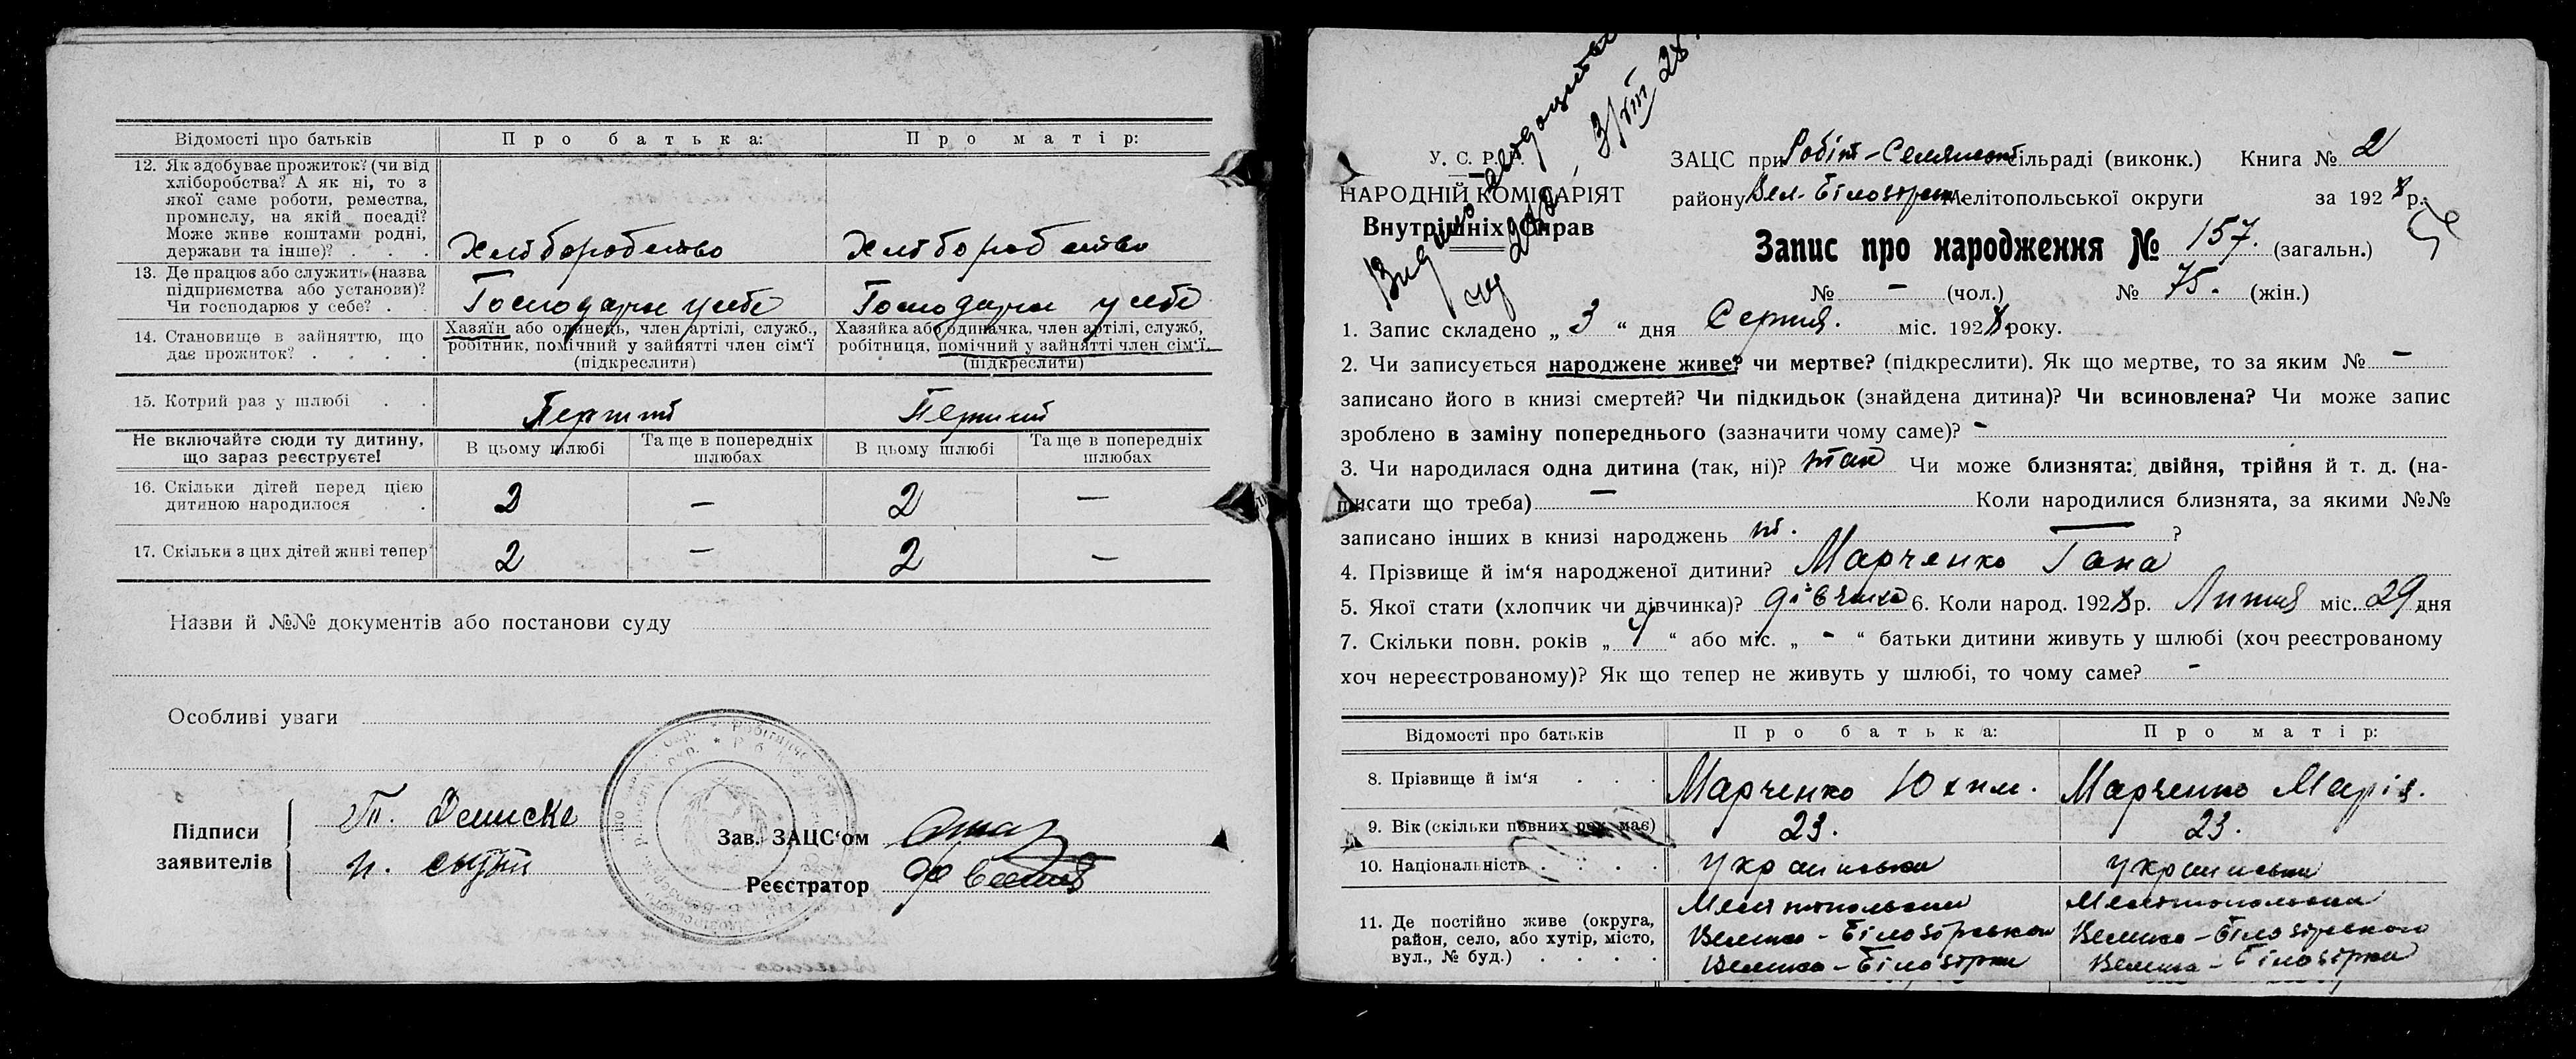 Відомості про батьків
Про батька:
Про матір:
12. Як здобуває прожиток? (чи від
хліборобства? А як ні, то з
якої саме роботи, ремества,
промислу, на якій посаді?
Може живе коштами родні,
держави та інше)? . . .
Хліборобство
Хліборобство
13. Де працює або служить (назва
підприємства або установи)?
Чи господарює у себе? . .
Господарем у себе
Господарем у себе
14. Становище в зайняттю, що
дає прожиток? . . . .
Хазяїн або одинець, член артілі, служб.,
робітник, помічний у зайнятті член сім'ї
(підкреслити)
Хазяйка або одиначка, член артілі, служб,
робітниця, помічний у зайнятті член сім'ї.
(підкреслити)
15. Котрий раз у шлюбі . .
Перший
Перший
Не включайте сюди ту дитину,
що зараз реєструєте!
В цьому шлюбі
Та ще в попередніх
шлюбах
В цьому шлюбі
Та ще в попередніх
шлюбах
16. Скільки дітей перед цією
дитиною народилося .
2 — 2 —
17. Скільки з цих дітей живі тепер
2 — 2 —
Назви й №№ документів або постанови суду
Особливі уваги
Підписи
заявителів
Зав. ЗАЦС'ом
Реєстратор
У. С. Р. Р.
НАРОДНІЙ КОМІСАРІЯТ
Внутрішніх Справ
Видано
3/VIII 28.
ЗАЦС при Робіт-Селянськ сільраді (виконк.) Книга № 2
району Вел-Білозірк Мелітопольської округи за 1928 р.
Запис про народження № 157. (загальн.)
№ - (чол.) № 75. (жін.)
1. Запис складено „ 3 “ дня Серпня. міс. 1928 року.
2. Чи записується народжене живе? чи мертве? (підкреслити). Як що мертве, то за яким № -
записано його в книзі смертей? Чи підкидьок (знайдена дитина)? Чи всиновлена? Чи може запис
зроблено в заміну попереднього (зазначити чому саме)? -
3. Чи народилася одна дитина (так, ні)? так Чи може близнята: двійня, трійня й т. д. (на-
писати що треба) — Коли народилися близнята, за якими №№
записано інших в книзі народжень ні. — ?
4. Прізвище й ім'я народженої дитини? Марченко Гана
5. Якої стати (хлопчик чи дівчинка)? дівчинка 6. Коли народ. 1928 р. Липня міс. 29 дня
7. Скільки повн. років „ 4 “ або міс. „ - “ батьки дитини живуть у шлюбі (хоч реєстрованому
хоч нереєстрованому)? Як що тепер не живуть у шлюбі, то чому саме? -
Відомості про батьків
Про батька:
Про матір:
8. Прізвище й ім'я . . .
Марченко Юхим.
Марченко Марія.
9. Вік (скільки повних рок. має)
23.
23.
10. Національність . . . .
українська
українська
11. Де постійно живе (округа,
район, село, або хутір, місто,
вул., № буд.) . . . .
Мелітопольська
Велико-Білозірського
Велика-Білозірка
Мелітопольська
Велико-Білозірського
Велика-Білозірка